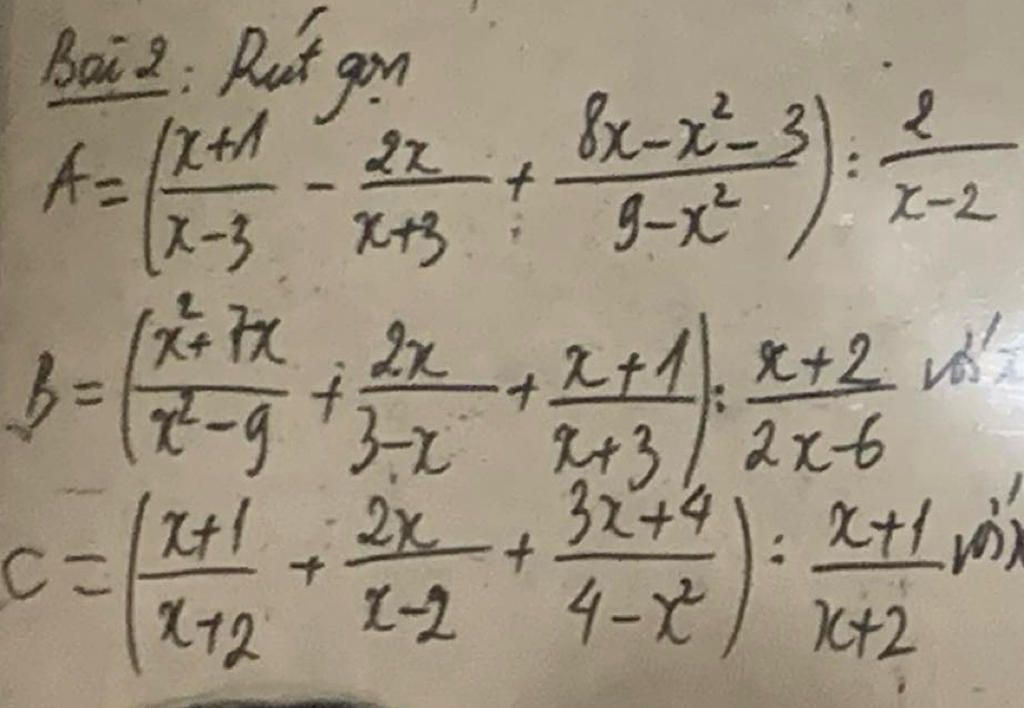 Bài 2: Rút gọn
A = ( (x+1)/(x-3) - 2x/(x+3) + (8x-x²-3)/(9-x²) ) : 2/(x-2)
B = ( (x²+7x)/(x²-9) + 2x/(3-x) + (x+1)/(x+3) ) : (x+2)/(2x-6) với
C = ( (x+1)/(x+2) + 2x/(x-2) + (3x+4)/(4-x²) ) : (x+1)/(x+2) với x